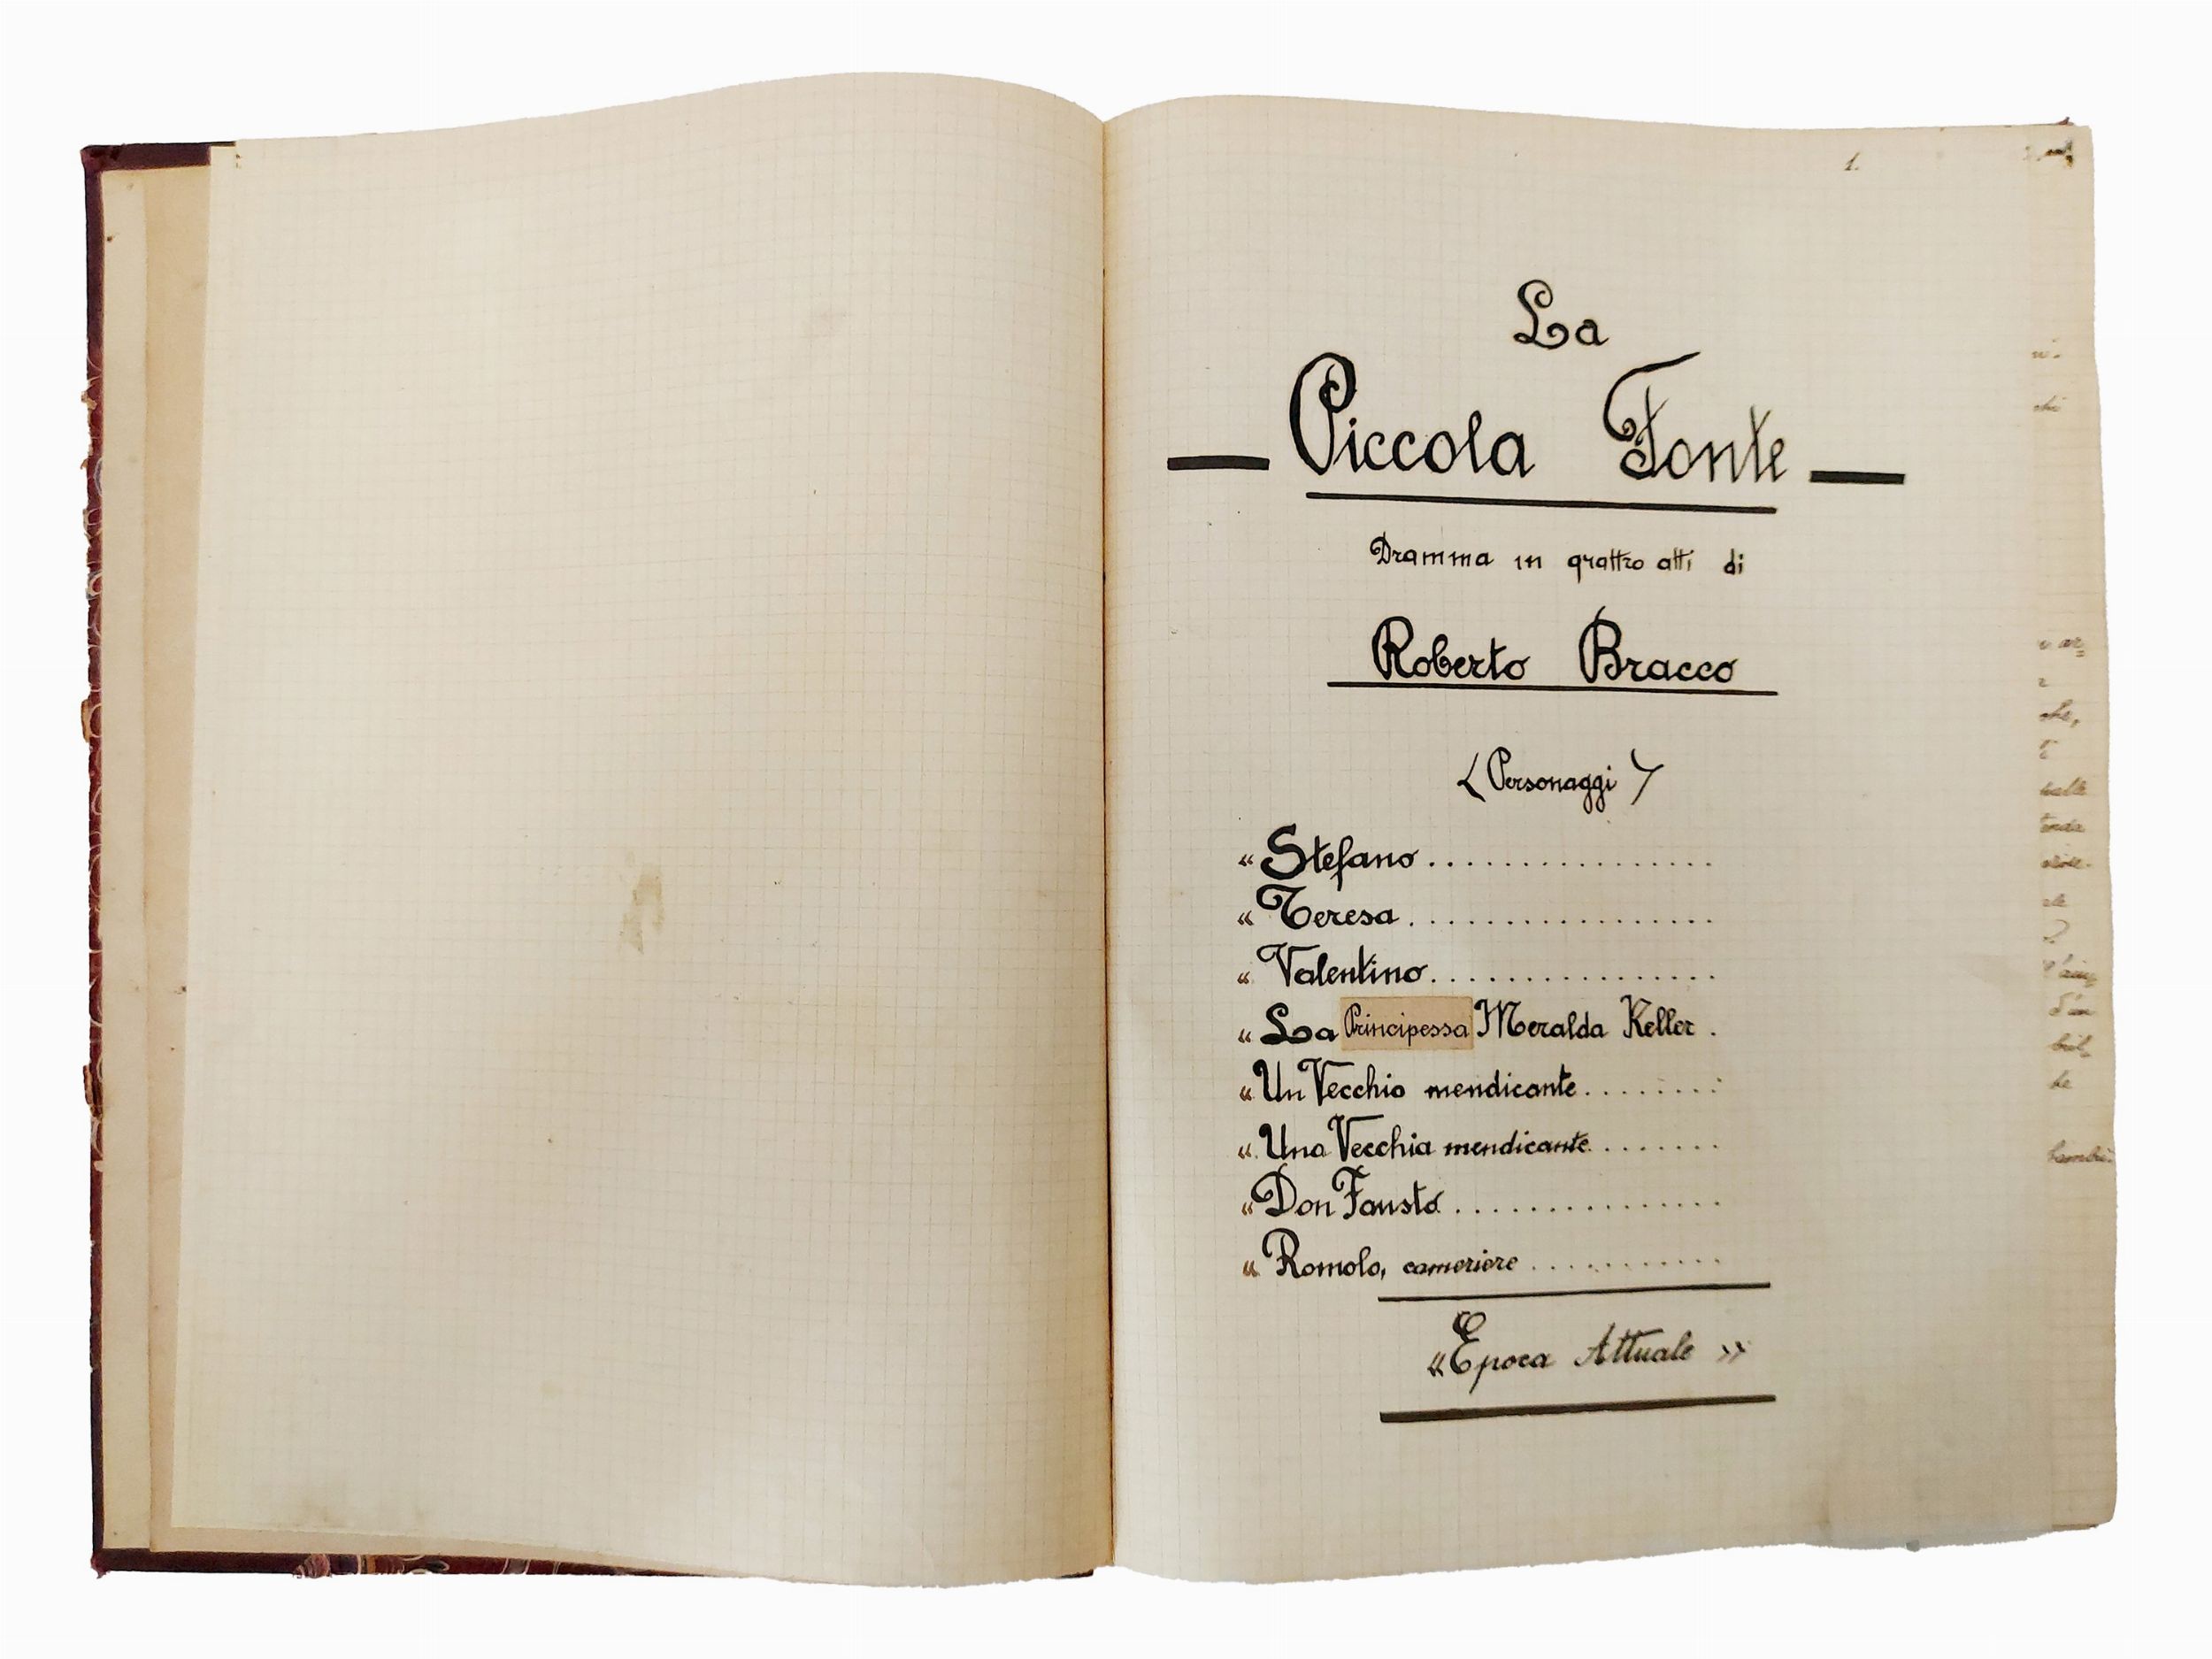 1.
La
Piccola Fonte
Dramma in quattro atti di
Roberto Bracco
< Personaggi >
“ Stefano................
“ Teresa.................
“ Valentino................
“ La Principessa Meralda Keller.
“ Un Vecchio mendicante........
“ Una Vecchia mendicante.......
“ Don Fausto...............
“ Romolo, cameriere...........
«Epoca Attuale»